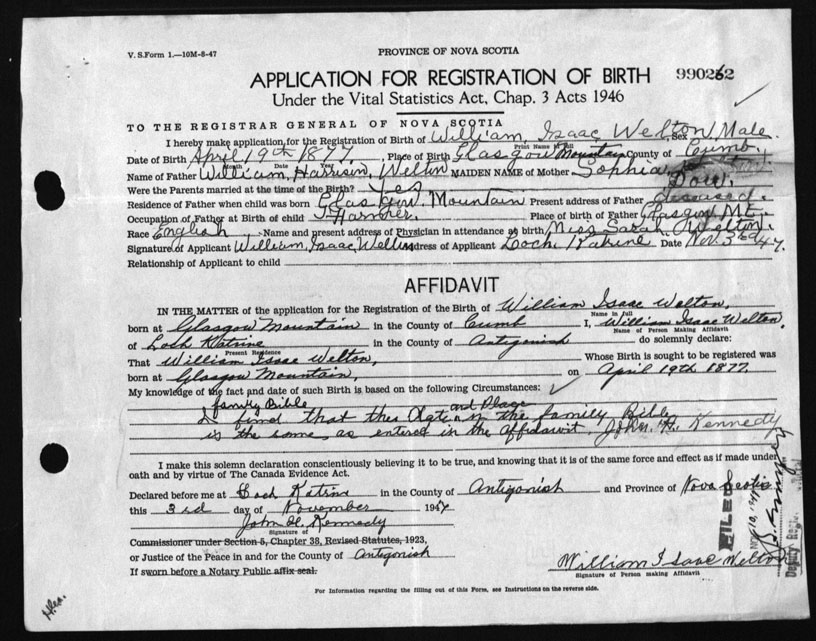 V. S. Form 1.—10M-8-47
PROVINCE OF NOVA SCOTIA
APPLICATION FOR REGISTRATION OF BIRTH
Under the Vital Statistics Act, Chap. 3 Acts 1946
TO THE REGISTRAR GENERAL OF NOVA SCOTIA
I hereby make application for the Registration of Birth of William, Isaac, Welton, Sex Male.
Print Name in full
Date of Birth April 19th 1877, Place of Birth Glasgow Mountain County of Cumb.
Month Date Year
Name of Father William, Harrison, Welton MAIDEN NAME of Mother Sophia,
Dow.
Were the Parents married at the time of the Birth? Yes
Residence of Father when child was born Glasgow, Mountain Present address of Father deseased.
Occupation of Father at Birth of child Place of birth of Father Glasgow Mt.
Race English Name and present address of Physician in attendance at birth Miss Sarah, Welton.
Signature of Applicant William, Isaac, Welton Address of Applicant Loch, Katrine Date Nov. 3rd 47.
Relationship of Applicant to child
AFFIDAVIT
IN THE MATTER of the application for the Registration of the Birth of William Isaac Welton,
Name in full
born at Glasgow Mountain in the County of Cumb I, William Isaac Welton,
Name of Person Making Affidavit
of Loch Katrine in the County of Antigonish do solemnly declare:
Present Residence
That William Isaac Welton, Whose Birth is sought to be registered was
born at Glasgow Mountain, on April 19th 1877.
My knowledge of the fact and date of such Birth is based on the following Circumstances:
family Bible
I find that this Date and Place in the family Bible
is the same as entered in the affidavit John. H. Kennedy
I make this solemn declaration conscientiously believing it to be true, and knowing that it is of the same force and effect as if made under
oath and by virtue of The Canada Evidence Act.
Declared before me at Loch Katrine in the County of Antigonish and Province of Nova Scotia
this 3rd day of November 1947
John H. Kennedy
Signature of
Commissioner under Section 5, Chapter 38, Revised Statutes, 1923,
or Justice of the Peace in and for the County of Antigonish
If sworn before a Notary Public affix seal.
William Isaac Welton
Signature of Person making Affidavit
For Information regarding the filling out of this Form, see Instructions on the reverse side.
FILED
Deputy